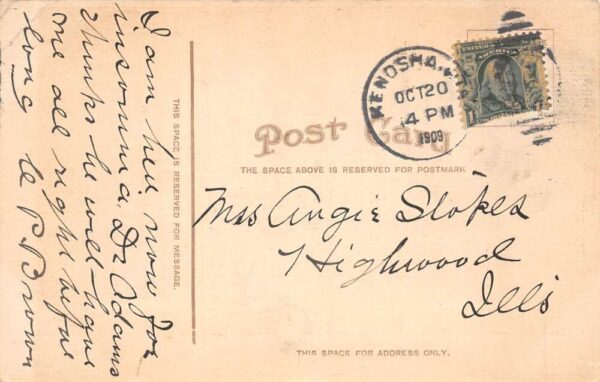 I am here now for
insomnia. Dr Adams
thinks he will have
me all right before
long C P Brown
THIS SPACE IS RESERVED FOR MESSAGE.
KENOSHA,
OCT 20
4 PM
1909
UNITED STATES
AMERICA
1
Post Card
THE SPACE ABOVE IS RESERVED FOR POSTMARK
Mrs Angie Stokes
Highwood
Ills
THIS SPACE FOR ADDRESS ONLY.